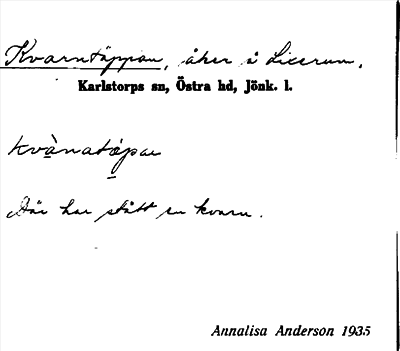 Kvarntäppan, åker å Licerum.
Karlstorps sn, Östra hd, Jönk. l.
kvànatäpan
Där har stått en kvarn.
Annalisa Anderson 1935